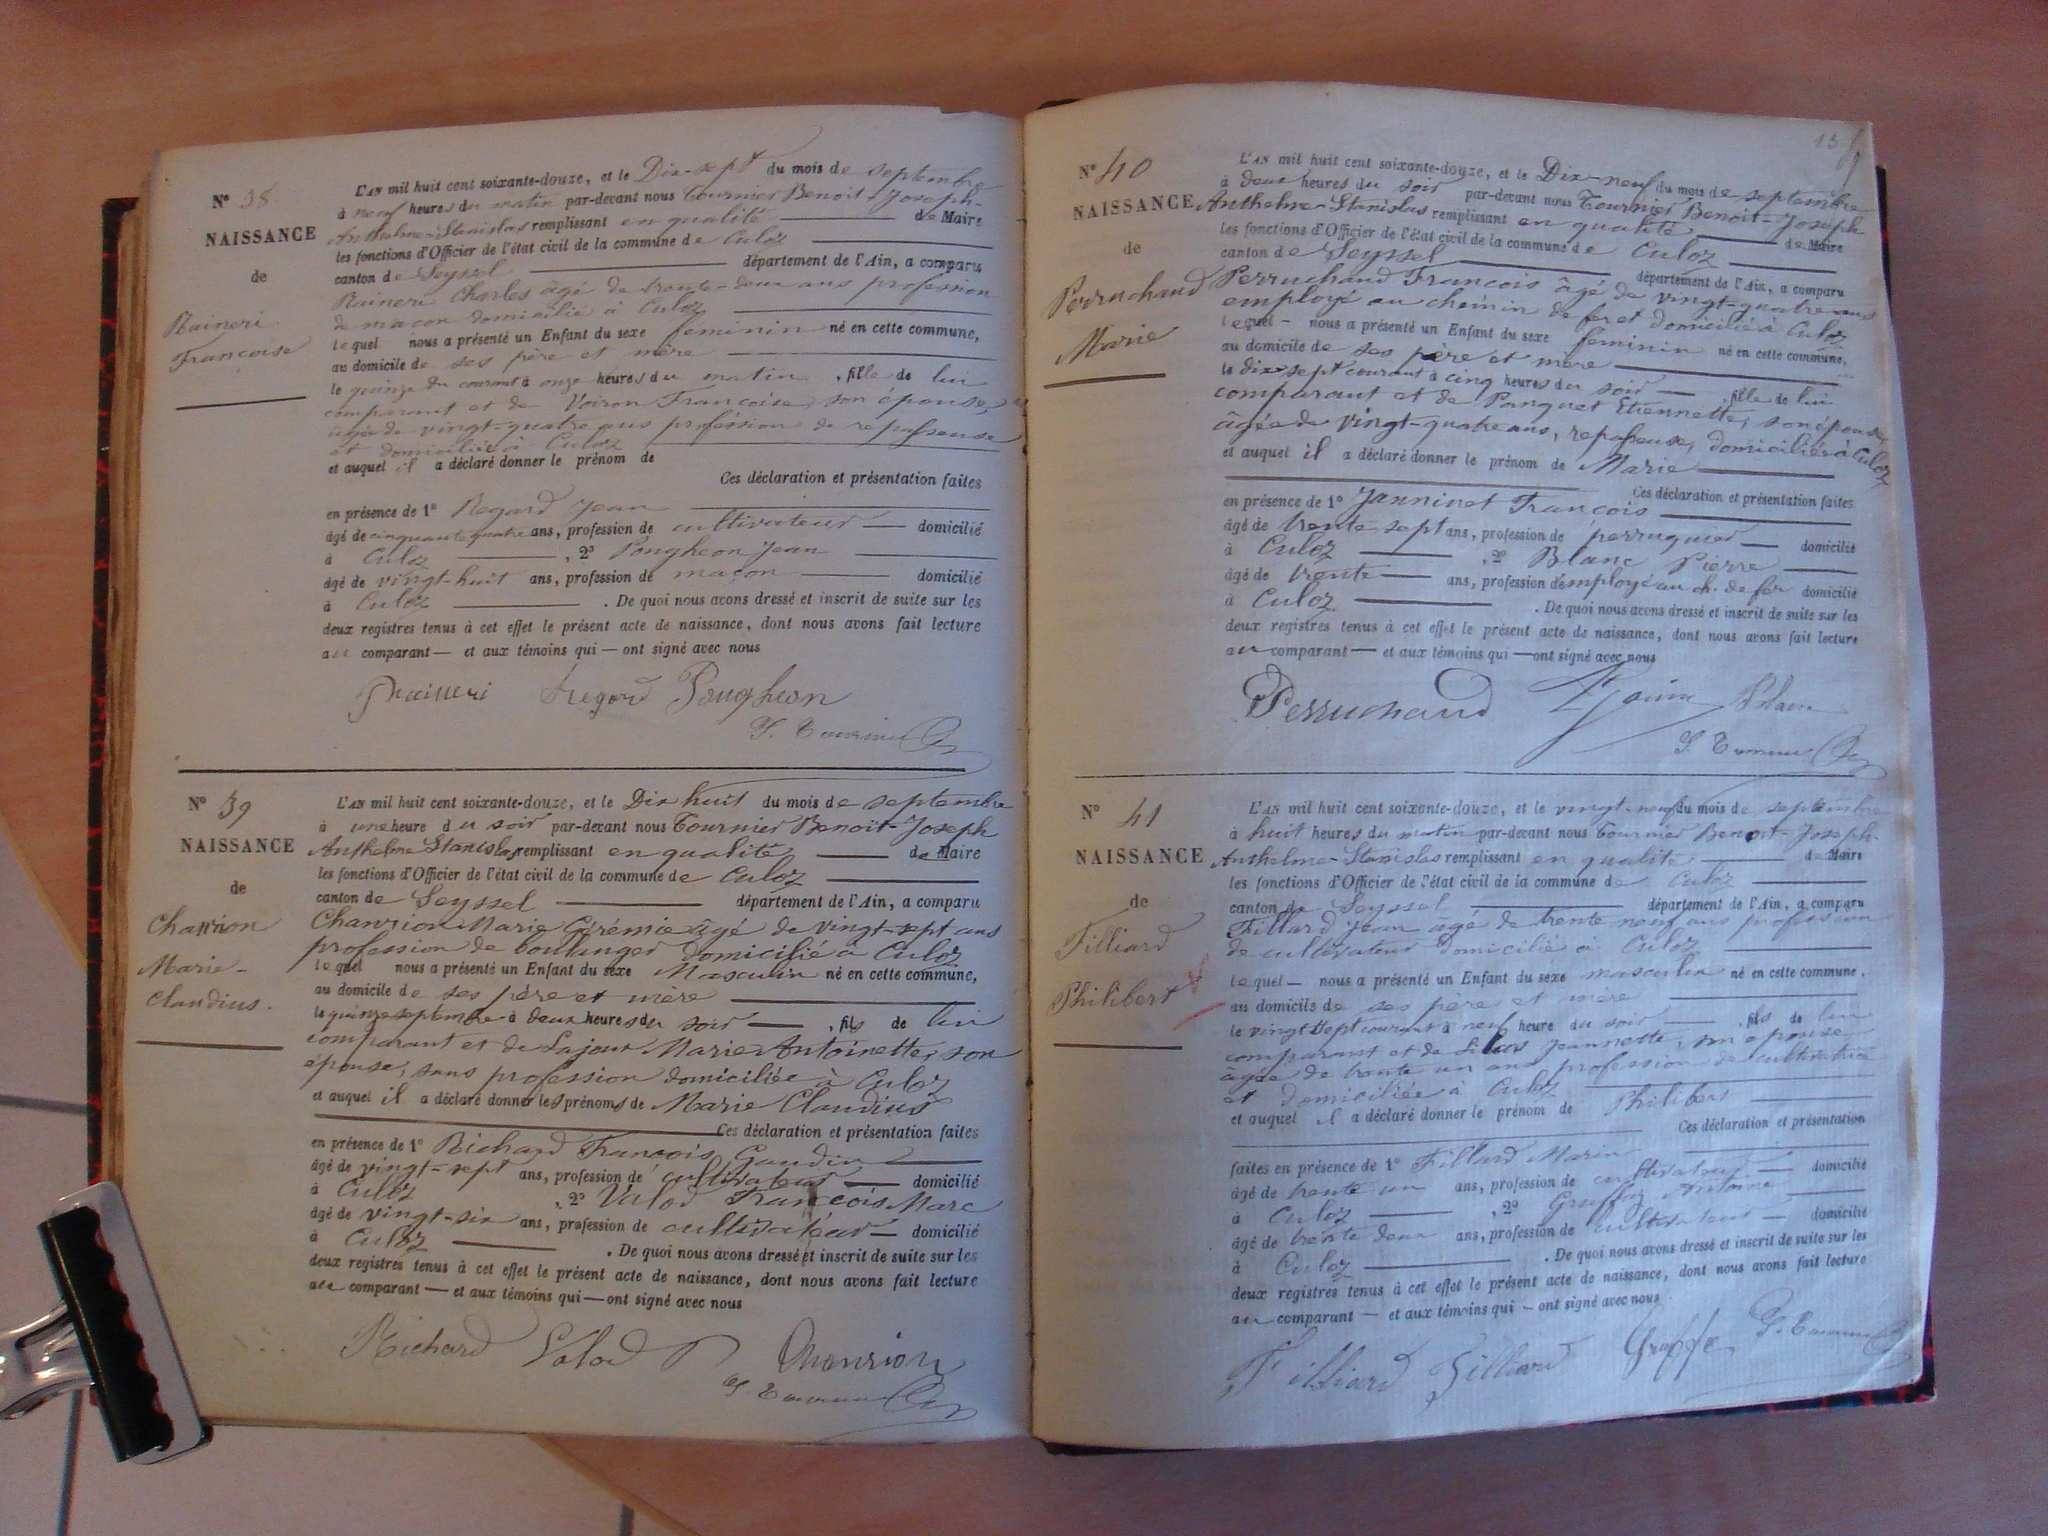 N° 38
NAISSANCE
de
Raineri
Françoise
L'AN mil huit cent soixante-douze, et le Dix-sept du mois de septembre
à neuf heures du matin par-devant nous Tournier Benoit-Joseph-
Anthelme-Stanislas remplissant en qualité de Maire
les fonctions d'Officier de l'état civil de la commune de Culoz
canton de Seyssel département de l'Ain, a comparu
Raineri Charles âgé de trente-deux ans profession
de maçon domicilié à Culoz
lequel nous a présenté un Enfant du sexe feminin né en cette commune,
au domicile de ses père et mère
le quinze du courant à onze heures du matin, fille de lui
comparant et de Voiron Françoise, son épouse,
âgée de vingt-quatre ans profession de repasseuse
et domiciliée à Culoz
et auquel il a déclaré donner le prénom de
Ces déclaration et présentation faites
en présence de 1° Regard Jean
âgé de cinquante quatre ans, profession de cultivateur domicilié
à Culoz, 2° Pongheon Jean
âgé de vingt-huit ans, profession de maçon domicilié
à Culoz. De quoi nous avons dressé et inscrit de suite sur les
deux registres tenus à cet effet le présent acte de naissance, dont nous avons fait lecture
au comparant — et aux témoins qui — ont signé avec nous
Raineri Regard Pougheon
S. Tournier
N° 39
NAISSANCE
de
Chanrion
Marie-
Claudius.
L'AN mil huit cent soixante-douze, et le Dix huit du mois de septembre
à une heure du soir par-devant nous Tournier Benoit-Joseph
Anthelme Stanislas remplissant en qualité de Maire
les fonctions d'Officier de l'état civil de la commune de Culoz
canton de Seyssel département de l'Ain, a comparu
Chanrion Marie Gérémie âgé de vingt-sept ans
profession de boulanger domicilié à Culoz
lequel nous a présenté un Enfant du sexe Masculin né en cette commune,
au domicile de ses père et mère
le quinze septembre à deux heures du soir, fils de lui
comparant et de Lajoux Marie Antoinette, son
épouse, sans profession domiciliée à Culoz
et auquel il a déclaré donner les prénoms de Marie Claudius
Ces déclaration et présentation faites
en présence de 1° Richard François Gaudin
âgé de vingt-sept ans, profession de cultivateur domicilié
à Culoz, 2° Valod François Marc
âgé de vingt-six ans, profession de cultivateur domicilié
à Culoz. De quoi nous avons dressé et inscrit de suite sur les
deux registres tenus à cet effet le présent acte de naissance, dont nous avons fait lecture
au comparant — et aux témoins qui — ont signé avec nous
Richard Valod Chanrion
S. Tournier
13
N° 40
NAISSANCE
de
Perruchaud
Marie
L'AN mil huit cent soixante-douze, et le Dix-neuf du mois de septembre
à deux heures du soir par-devant nous Tournier Benoit-Joseph
Anthelme-Stanislas remplissant en qualité de Maire
les fonctions d'Officier de l'état civil de la commune de Culoz
canton de Seyssel département de l'Ain, a comparu
Perruchaud François âgé de vingt-quatre ans
employé au chemin de fer et domicilié à Culoz
lequel — nous a présenté un Enfant du sexe feminin né en cette commune,
au domicile de ses père et mère
le dix-sept courant à cinq heures du soir — fille de lui
comparant et de Panquet Etiennette, son épouse,
âgée de vingt-quatre ans, repasseuse, domiciliée à Culoz
et auquel il a déclaré donner le prénom de Marie
Ces déclaration et présentation faites
en présence de 1° Janninet François
âgé de trente sept ans, profession de perruquier domicilié
à Culoz, 2° Blanc Pierre
âgé de trente ans, profession d'employé au ch. de fer domicilié
à Culoz. De quoi nous avons dressé et inscrit de suite sur les
deux registres tenus à cet effet le présent acte de naissance, dont nous avons fait lecture
au comparant — et aux témoins qui — ont signé avec nous
Perruchaud Blanc
S. Tournier
N° 41
NAISSANCE
de
Filliard
Philibert
L'AN mil huit cent soixante-douze, et le vingt-neuf du mois de septembre
à huit heures du matin par-devant nous Tournier Benoit-Joseph-
Anthelme-Stanislas remplissant en qualité de Maire
les fonctions d'Officier de l'état civil de la commune de Culoz
canton de Seyssel département de l'Ain, a comparu
Fillard Jean âgé de trente neuf ans profession
de cultivateur domicilié à Culoz
lequel — nous a présenté un Enfant du sexe masculin né en cette commune,
au domicile de ses père et mère
le vingt sept courant à neuf heure du soir, fils de lui
comparant et de Jeannette, son épouse
âgée de trente un ans profession de cultivatrice
et domiciliée à Culoz
et auquel il a déclaré donner le prénom de Philibert
Ces déclaration et présentation
faites en présence de 1° Fillard Marin
âgé de trente un ans, profession de cultivateur domicilié
à Culoz, 2° Antoine
âgé de trente deux ans, profession de cultivateur domicilié
à Culoz. De quoi nous avons dressé et inscrit de suite sur les
deux registres tenus à cet effet le présent acte de naissance, dont nous avons fait lecture
au comparant — et aux témoins qui — ont signé avec nous
Filliard Filliard S. Tournier